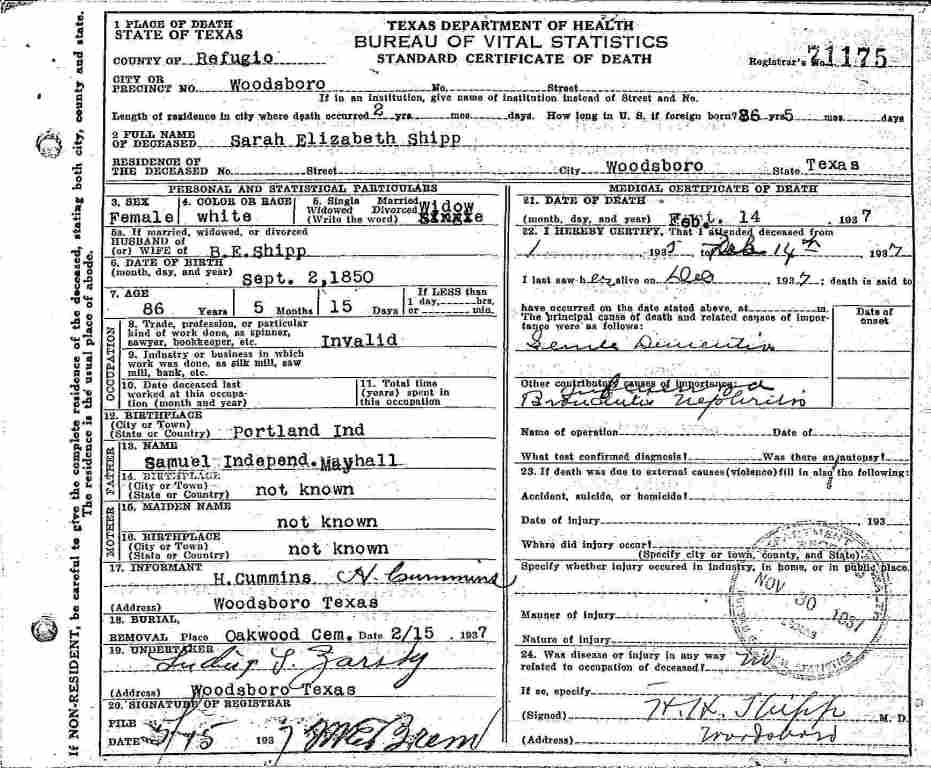 1 PLACE OF DEATH
STATE OF TEXAS
COUNTY OF Refugio
TEXAS DEPARTMENT OF HEALTH
BUREAU OF VITAL STATISTICS
STANDARD CERTIFICATE OF DEATH
Registrar's No. 71175
CITY OR
PRECINCT NO. Woodsboro No. Street
If in an institution, give name of institution instead of Street and No.
Length of residence in city where death occurred 2 yrs. mos. days. How long in U. S. if foreign born? 86 yrs 5 mos days
2 FULL NAME
OF DECEASED Sarah Elizabeth Shipp
RESIDENCE OF
THE DECEASED No. Street City Woodsboro State Texas
PERSONAL AND STATISTICAL PARTICULARS
3. SEX
Female
4. COLOR OR RACE
white
5. Single Married
Widowed Divorced
(Write the word)
Widow
Single
5a. If married, widowed, or divorced
HUSBAND of
(or) WIFE of B.E.Shipp
6. DATE OF BIRTH
(month, day, and year) Sept. 2,1850
7. AGE
86 Years 5 Months 15 Days
If LESS than
1 day, hrs.
or min.
OCCUPATION
8. Trade, profession, or particular
kind of work done, as spinner,
sawyer, bookkeeper, etc. Invalid
9. Industry or business in which
work was done, as silk mill, saw
mill, bank, etc.
10. Date deceased last
worked at this occupa-
tion (month and year)
11. Total time
(years) spent in
this occupation
12. BIRTHPLACE
(City or Town)
(State or Country) Portland Ind
FATHER
13. NAME
Samuel Independ. Mayhall
14. BIRTHPLACE
(City or Town)
(State or Country) not known
MOTHER
15. MAIDEN NAME
not known
16. BIRTHPLACE
(City or Town)
(State or Country) not known
17. INFORMANT
H.Cummins H. Cummins
(Address) Woodsboro Texas
18. BURIAL,
REMOVAL Place Oakwood Cem. Date 2/15 .1937
19. UNDERTAKER
(Address) Woodsboro Texas
20. SIGNATURE OF REGISTRAR
FILE
DATE 2/15 1937
MEDICAL CERTIFICATE OF DEATH
21. DATE OF DEATH
(month, day, and year) Feb. 14 , 1937
22. I HEREBY CERTIFY, That I attended deceased from
1 193 to Feb 14th 1937
I last saw her alive on , 1937; death is said to
have occurred on the date stated above, at m.
The principal cause of death and related causes of impor-
tance were as follows:
Date of
onset
Senile Dementia
Other contributory causes of importance:
Nephritis
Name of operation Date of
What test confirmed diagnosis? Was there an autopsy?
23. If death was due to external causes (violence) fill in also the following:
Accident, suicide, or homicide?
Date of injury , 193
Where did injury occur?
(Specify city or town, county, and State)
Specify whether injury occured in industry, in home, or in public place.
Manner of injury
Nature of injury
24. Was disease or injury in any way
related to occupation of deceased? no
If so, specify
(Signed) H. H. Shipp M. D.
(Address) Woodsboro
NOV 30
VITAL STATISTICS
If NON-RESIDENT, be careful to give the complete residence of the deceased, stating both city, county and state.
The residence is the usual place of abode.